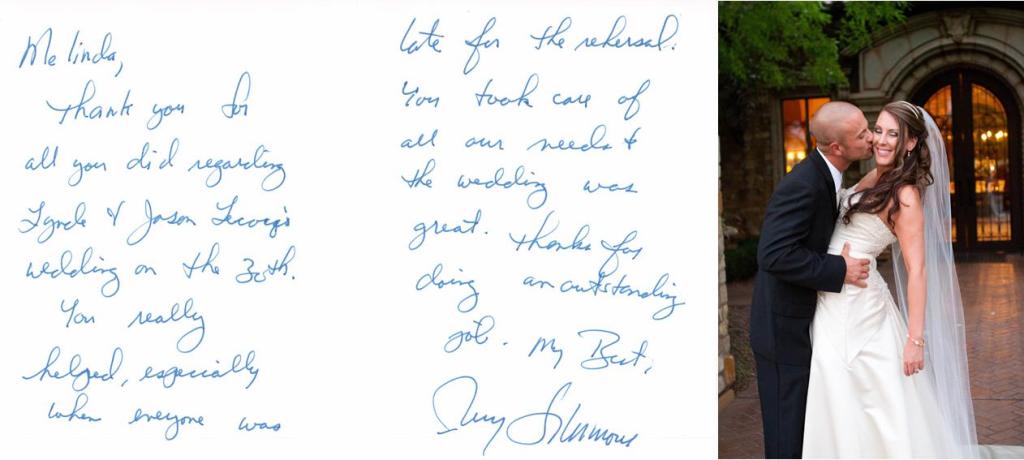 Melinda,
thank you for
all you did regarding
Lynde & Jason
wedding on the 30th.
You really
helped, especially
when everyone was
late for the rehersal.
You took care of
all our needs &
the wedding was
great. Thanks for
doing an outstanding
job. My Best,